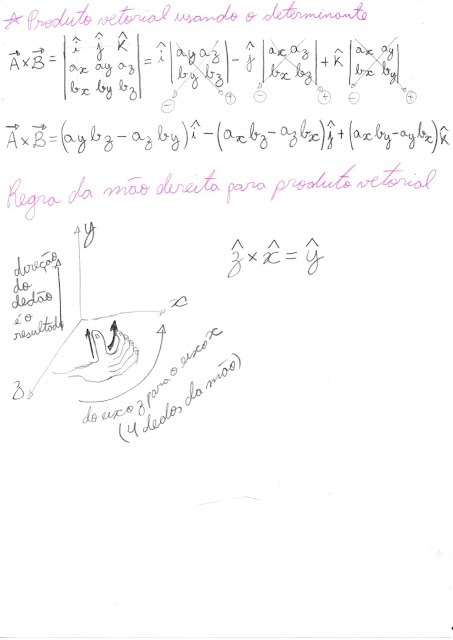 * Produto vetorial usando o determinante
A×B = | î ĵ k̂ | = î | ay az | - ĵ | ax az | + k̂ | ax ay |
| ax ay az | | by bz | | bx bz | | bx by |
| bx by bz | ⊖ ⊕ ⊖ ⊕ ⊖ ⊕
A×B = (ay bz - az by) î - (ax bz - az bx) ĵ + (ax by - ay bx) k̂
Regra da mão direita para produto vetorial
y
direção
do
dedão
é o
resultado
ẑ × x̂ = ŷ
x
z
do eixo z para o eixo x
(4 dedos da mão)